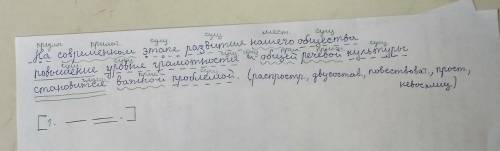 предл. прилаг. сущ. сущ. мест. сущ.
На современном этапе развития нашего общества
повышение уровня грамотности и общей речевой культуры
становится важной проблемой. (распростр., двусостав., повествоват., прост.,
невосклиц)
[1. — =. ]